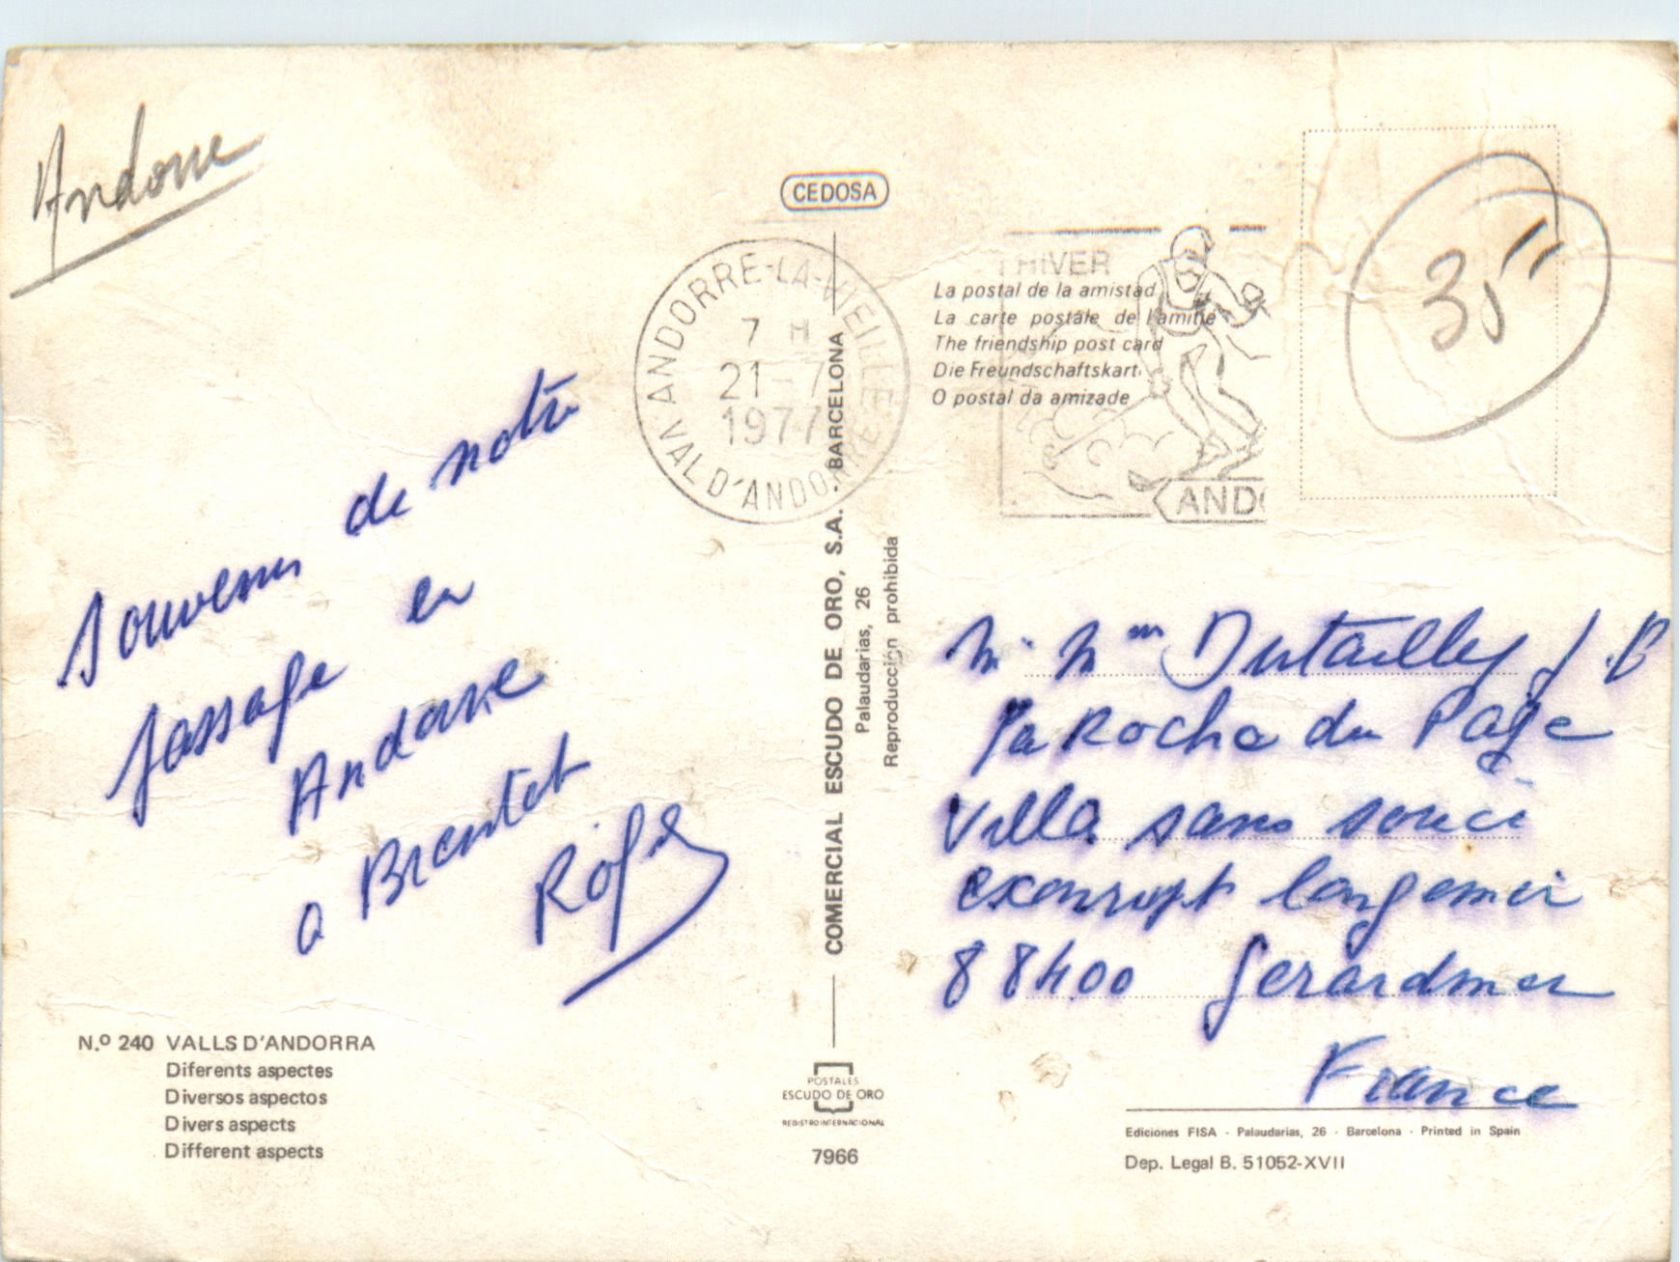 Andorre
CEDOSA
ANDORRE-LA-VIEILLE
7 H
21-7
1977
VAL D'ANDORRE
HIVER
ANDO
La postal de la amistad
La carte postale de l'amitie
The friendship post card
Die Freundschaftskart
O postal da amizade
35
Souvenir de notre
passage en
Andorre
a
COMERCIAL ESCUDO DE ORO, S.A. · BARCELONA
Palaudarias, 26
Reproducción prohibida
M. Mme Dutailly J.B
La Roche du Page
Villa sans souci
xonrupt longemer
88400 Gerardmer
France
N.º 240 VALLS D'ANDORRA
Diferents aspectes
Diversos aspectos
Divers aspects
Different aspects
POSTALES
ESCUDO DE ORO
REGISTRO INTERNACIONAL
7966
Ediciones FISA - Palaudarias, 26 - Barcelona - Printed in Spain
Dep. Legal B. 51052-XVII